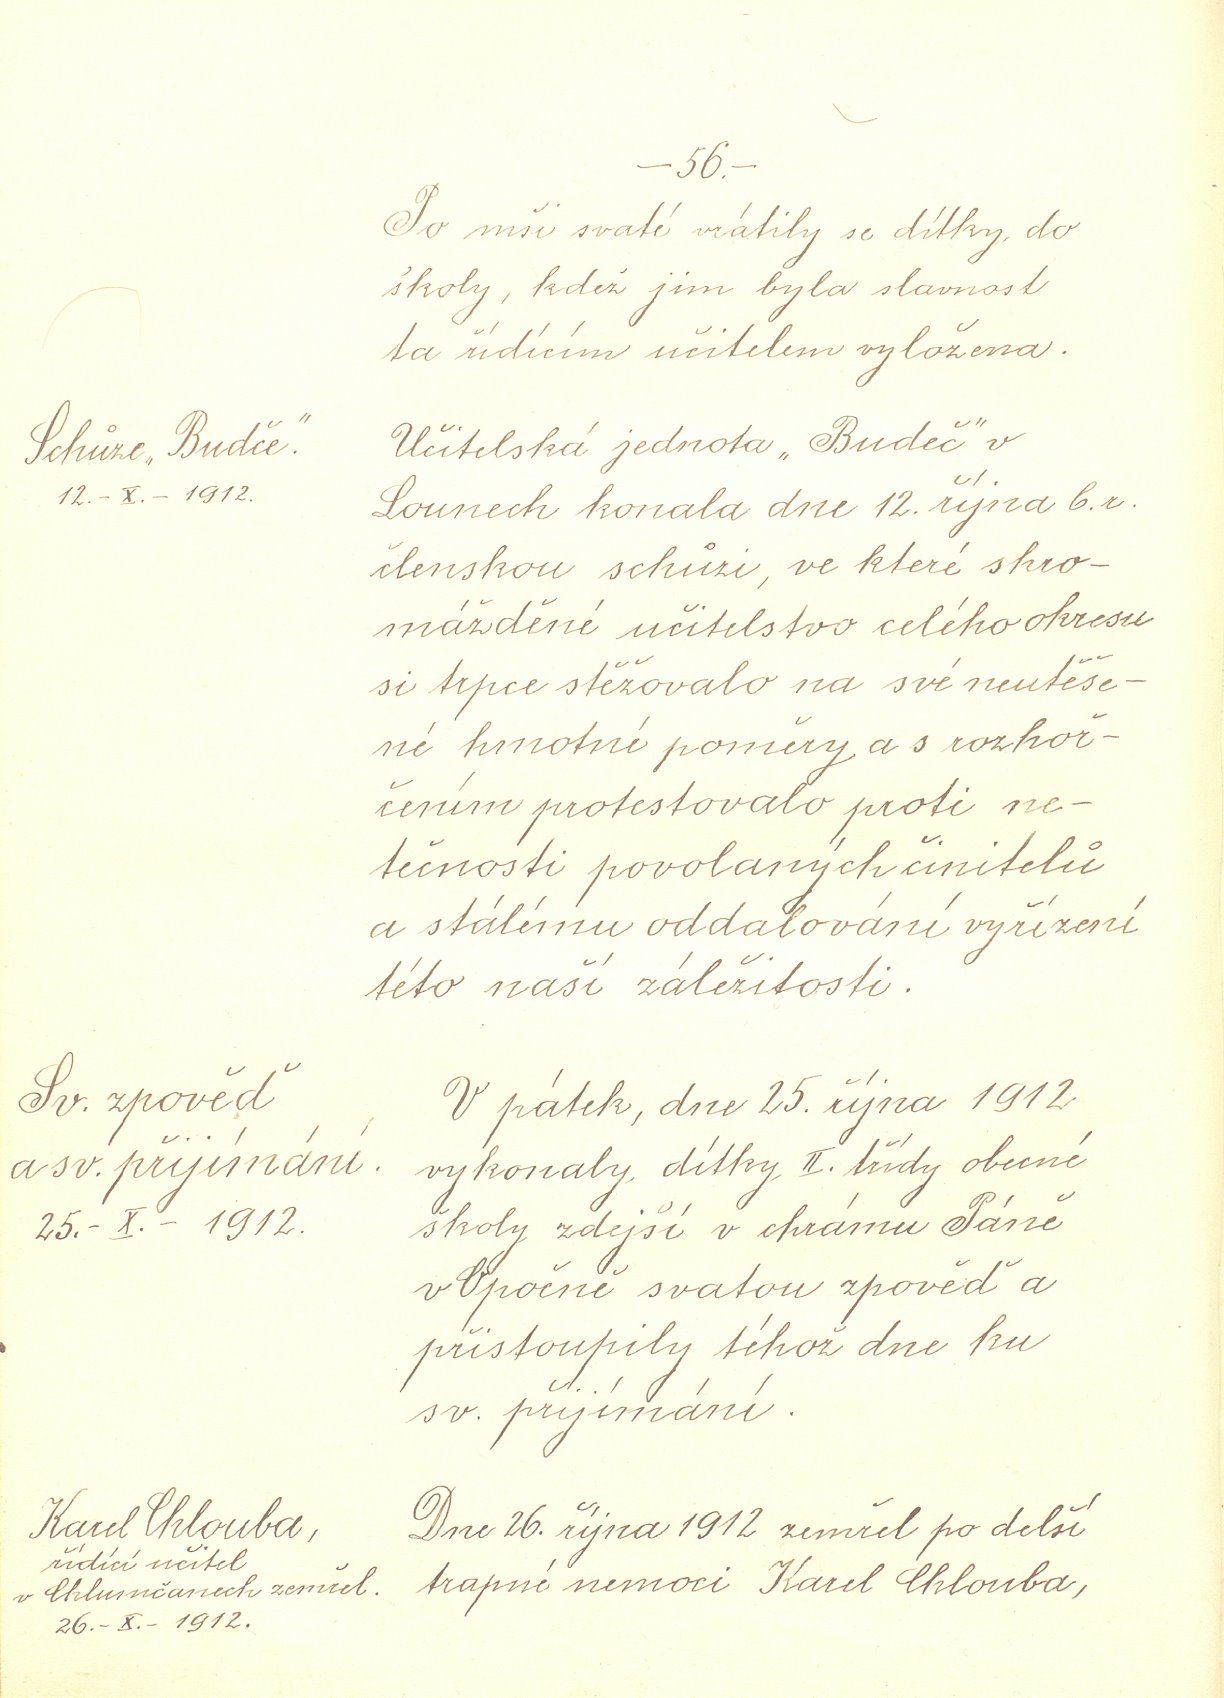 —56.—
Po mši svaté vrátily se dítky do
školy, kdež jim byla slavnost
ta řídícím učitelem vyložena.
Schůze „Budče".
12.-X.- 1912.
Učitelská jednota „Budeč" v
Lounech konala dne 12. října b.r.
členskou schůzi, ve které shro-
mážděné učitelstvo celého okresu
si trpce stěžovalo na své neutěše-
né hmotné poměry a s rozhoř-
čením protestovalo proti ne-
tečnosti povolaných činitelů
a stálému oddalování vyřízení
této naší záležitosti.
Sv. zpověď
a sv. přijímání.
25.- X.- 1912.
V pátek, dne 25. října 1912
vykonaly dítky II. třídy obecné
školy zdejší v chrámu Páně
v Opočně svatou zpověď a
přistoupily téhož dne ku
sv. přijímání.
Karel Chlouba,
řídící učitel
v Chlumčanech zemřel.
26.- X.- 1912.
Dne 26. října 1912 zemřel po delší
trapné nemoci Karel Chlouba,